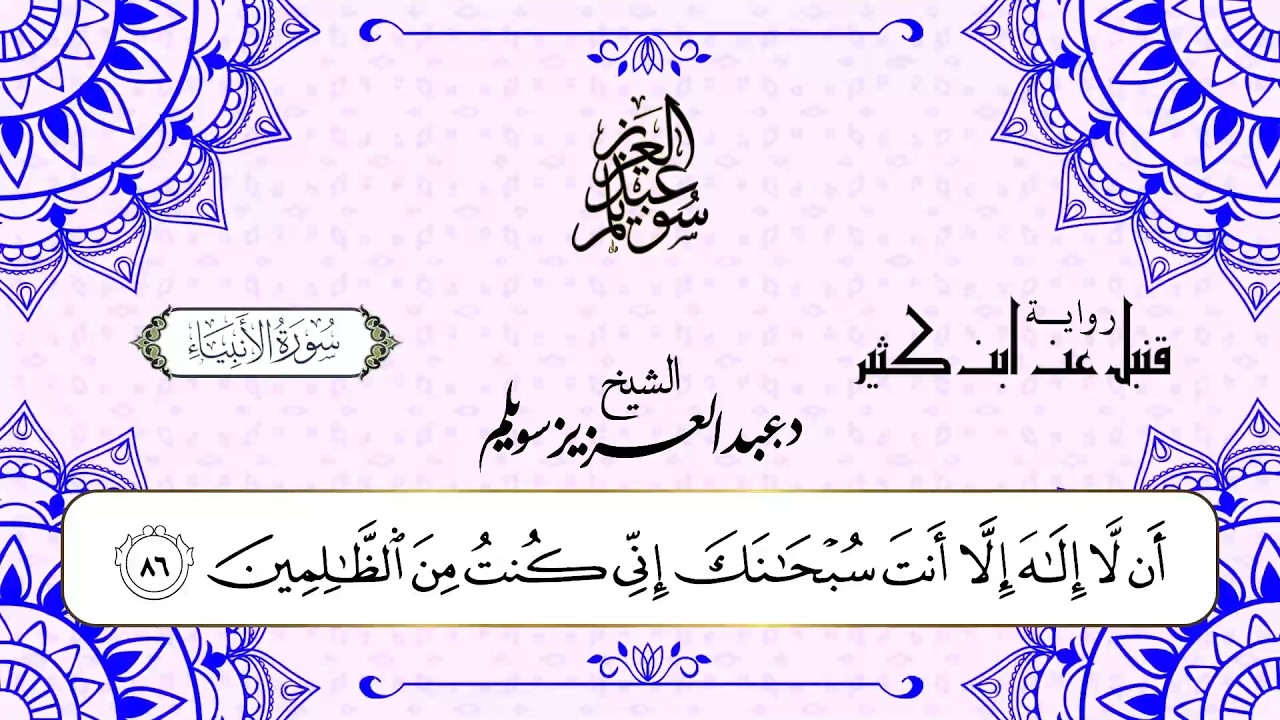 عبد العزيز سويلم
رواية
قنبل عن ابن كثير
سُورَةُ الأَنبِيَاء
الشيخ
د عبد العزيز سويلم
أَن لَّا إِلَٰهَ إِلَّا أَنتَ سُبْحَٰنَكَ إِنِّي كُنتُ مِنَ ٱلظَّٰلِمِينَ ٨٦